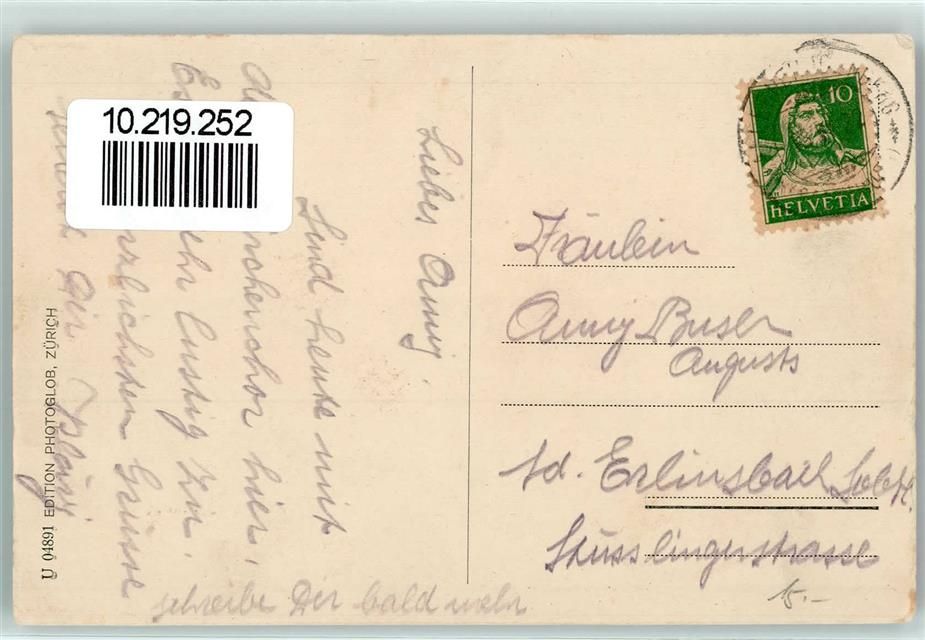 10.219.252
Lieber Anny
Sind heute mit
Kirchenchor hier,
Es sehr lustig zu.
herzlichsten Grüsse
sendet Dir
schreibe Dir bald mehr
U 04891 EDITION PHOTOGLOB, ZÜRICH
10
HELVETIA
Fräulein
Anny Buser
Augusts
Nd. Erlinsbach Soloth.
Stüsslingerstrasse
15.-